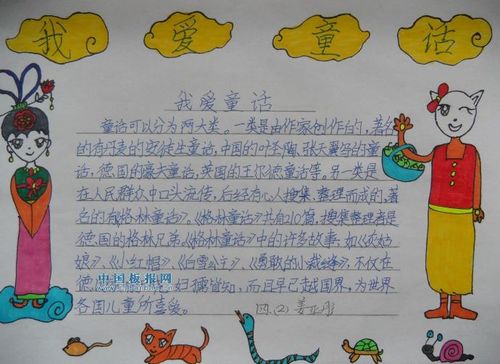 我爱童话
我爱童话
童话可以分为两大类。一类是由作家创作的,著名
的有丹麦的安徒生童话,中国的叶圣陶、张天翼写的童
话,德国的豪夫童话,英国的王尔德童话等。另一类是
在人民群众中口头流传,后经有心人搜集、整理而成的,著
名的有《格林童话》。《格林童话》共有210篇,搜集整理者是
德国的格林兄弟。《格林童话》中的许多故事,如《灰姑
娘》、《小红帽》、《白雪公主》、《勇敢的小裁缝》,不仅在
德 妇孺皆知,而且早已越国界,为世界
各国儿童所喜爱。 四.(2) 姜
中国板报网